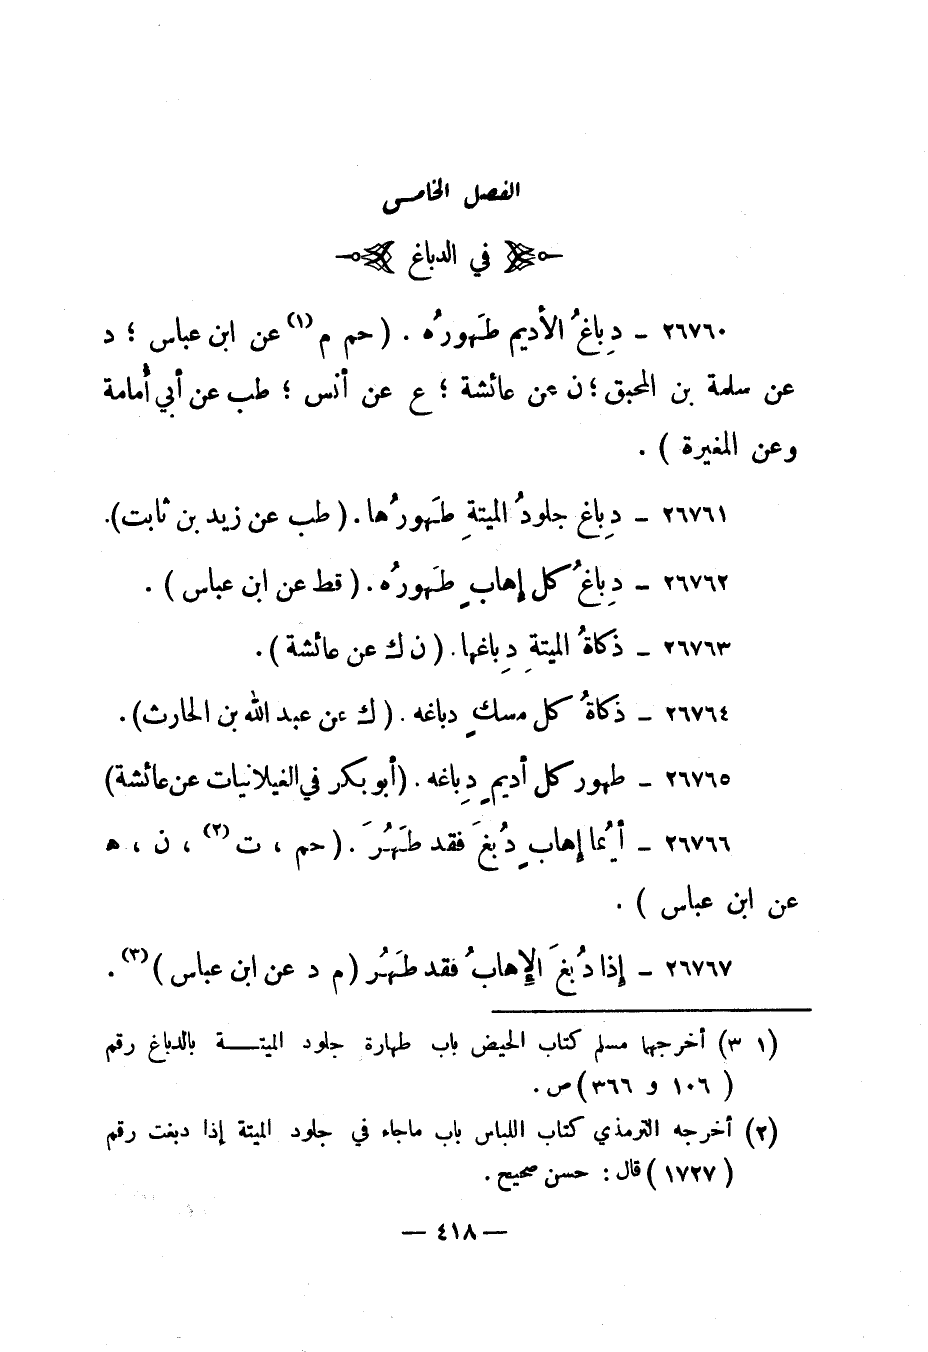 الفصل الخامس
في الدباغ
٢٦٧٦٠ – دِباغُ الأديم طَهورُه . ( حم م (١) عن ابن عباس ؛ د
عن سلمة بن المحبق ؛ ن عن عائشة ؛ ع عن أنس ؛ طب عن أبي أُمامة
وعن المغيرة ) .
٢٦٧٦١ – دِباغ جلودُ الميتةِ طَهورُها . ( طب عن زيد بن ثابت ) .
٢٦٧٦٢ – دِباغُ كل إهابٍ طَهورُه . ( قط عن ابن عباس ) .
٢٦٧٦٣ – ذكاةُ الميتةِ دِباغها . ( ن ك عن عائشة ) .
٢٦٧٦٤ – ذكاةُ كل مسكٍ دباغه . ( ك عن عبد الله بن الحارث ) .
٢٦٧٦٥ – طهور كل أديمٍ دِباغه . (أبو بكر في الغيلانيات عن عائشة)
٢٦٧٦٦ – أيُما إهابٍ دُبغَ فقد طَهُرَ . ( حم ، ت (٢) ، ن ، ه
عن ابن عباس ) .
٢٦٧٦٧ – إذا دُبغَ الإهابُ فقد طَهُر ( م د عن ابن عباس ) (٣) .
(١ ٣) أخرجها مسلم كتاب الحيض باب طهارة جلود الميتـــة بالدباغ رقم
( ١٠٦ و ٣٦٦ ) ص .
(٢) أخرجه الترمذي كتاب اللباس باب ماجاء في جلود الميتة إذا دبغت رقم
( ١٧٢٧ ) قال : حسن صحيح .
— ٤١٨ —